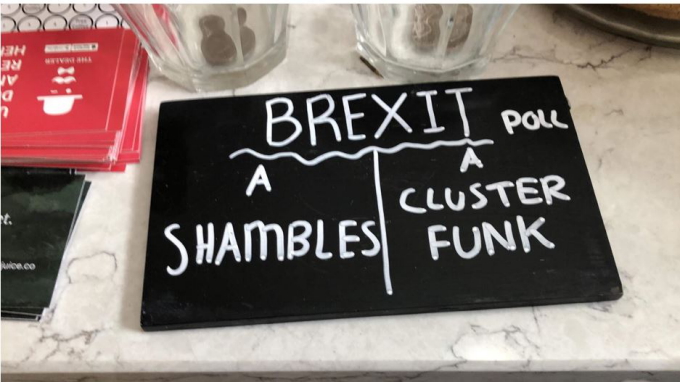 BREXIT POLL
A
SHAMBLES
A
CLUSTER
FUNK
THE DEALER
et.
juice.co